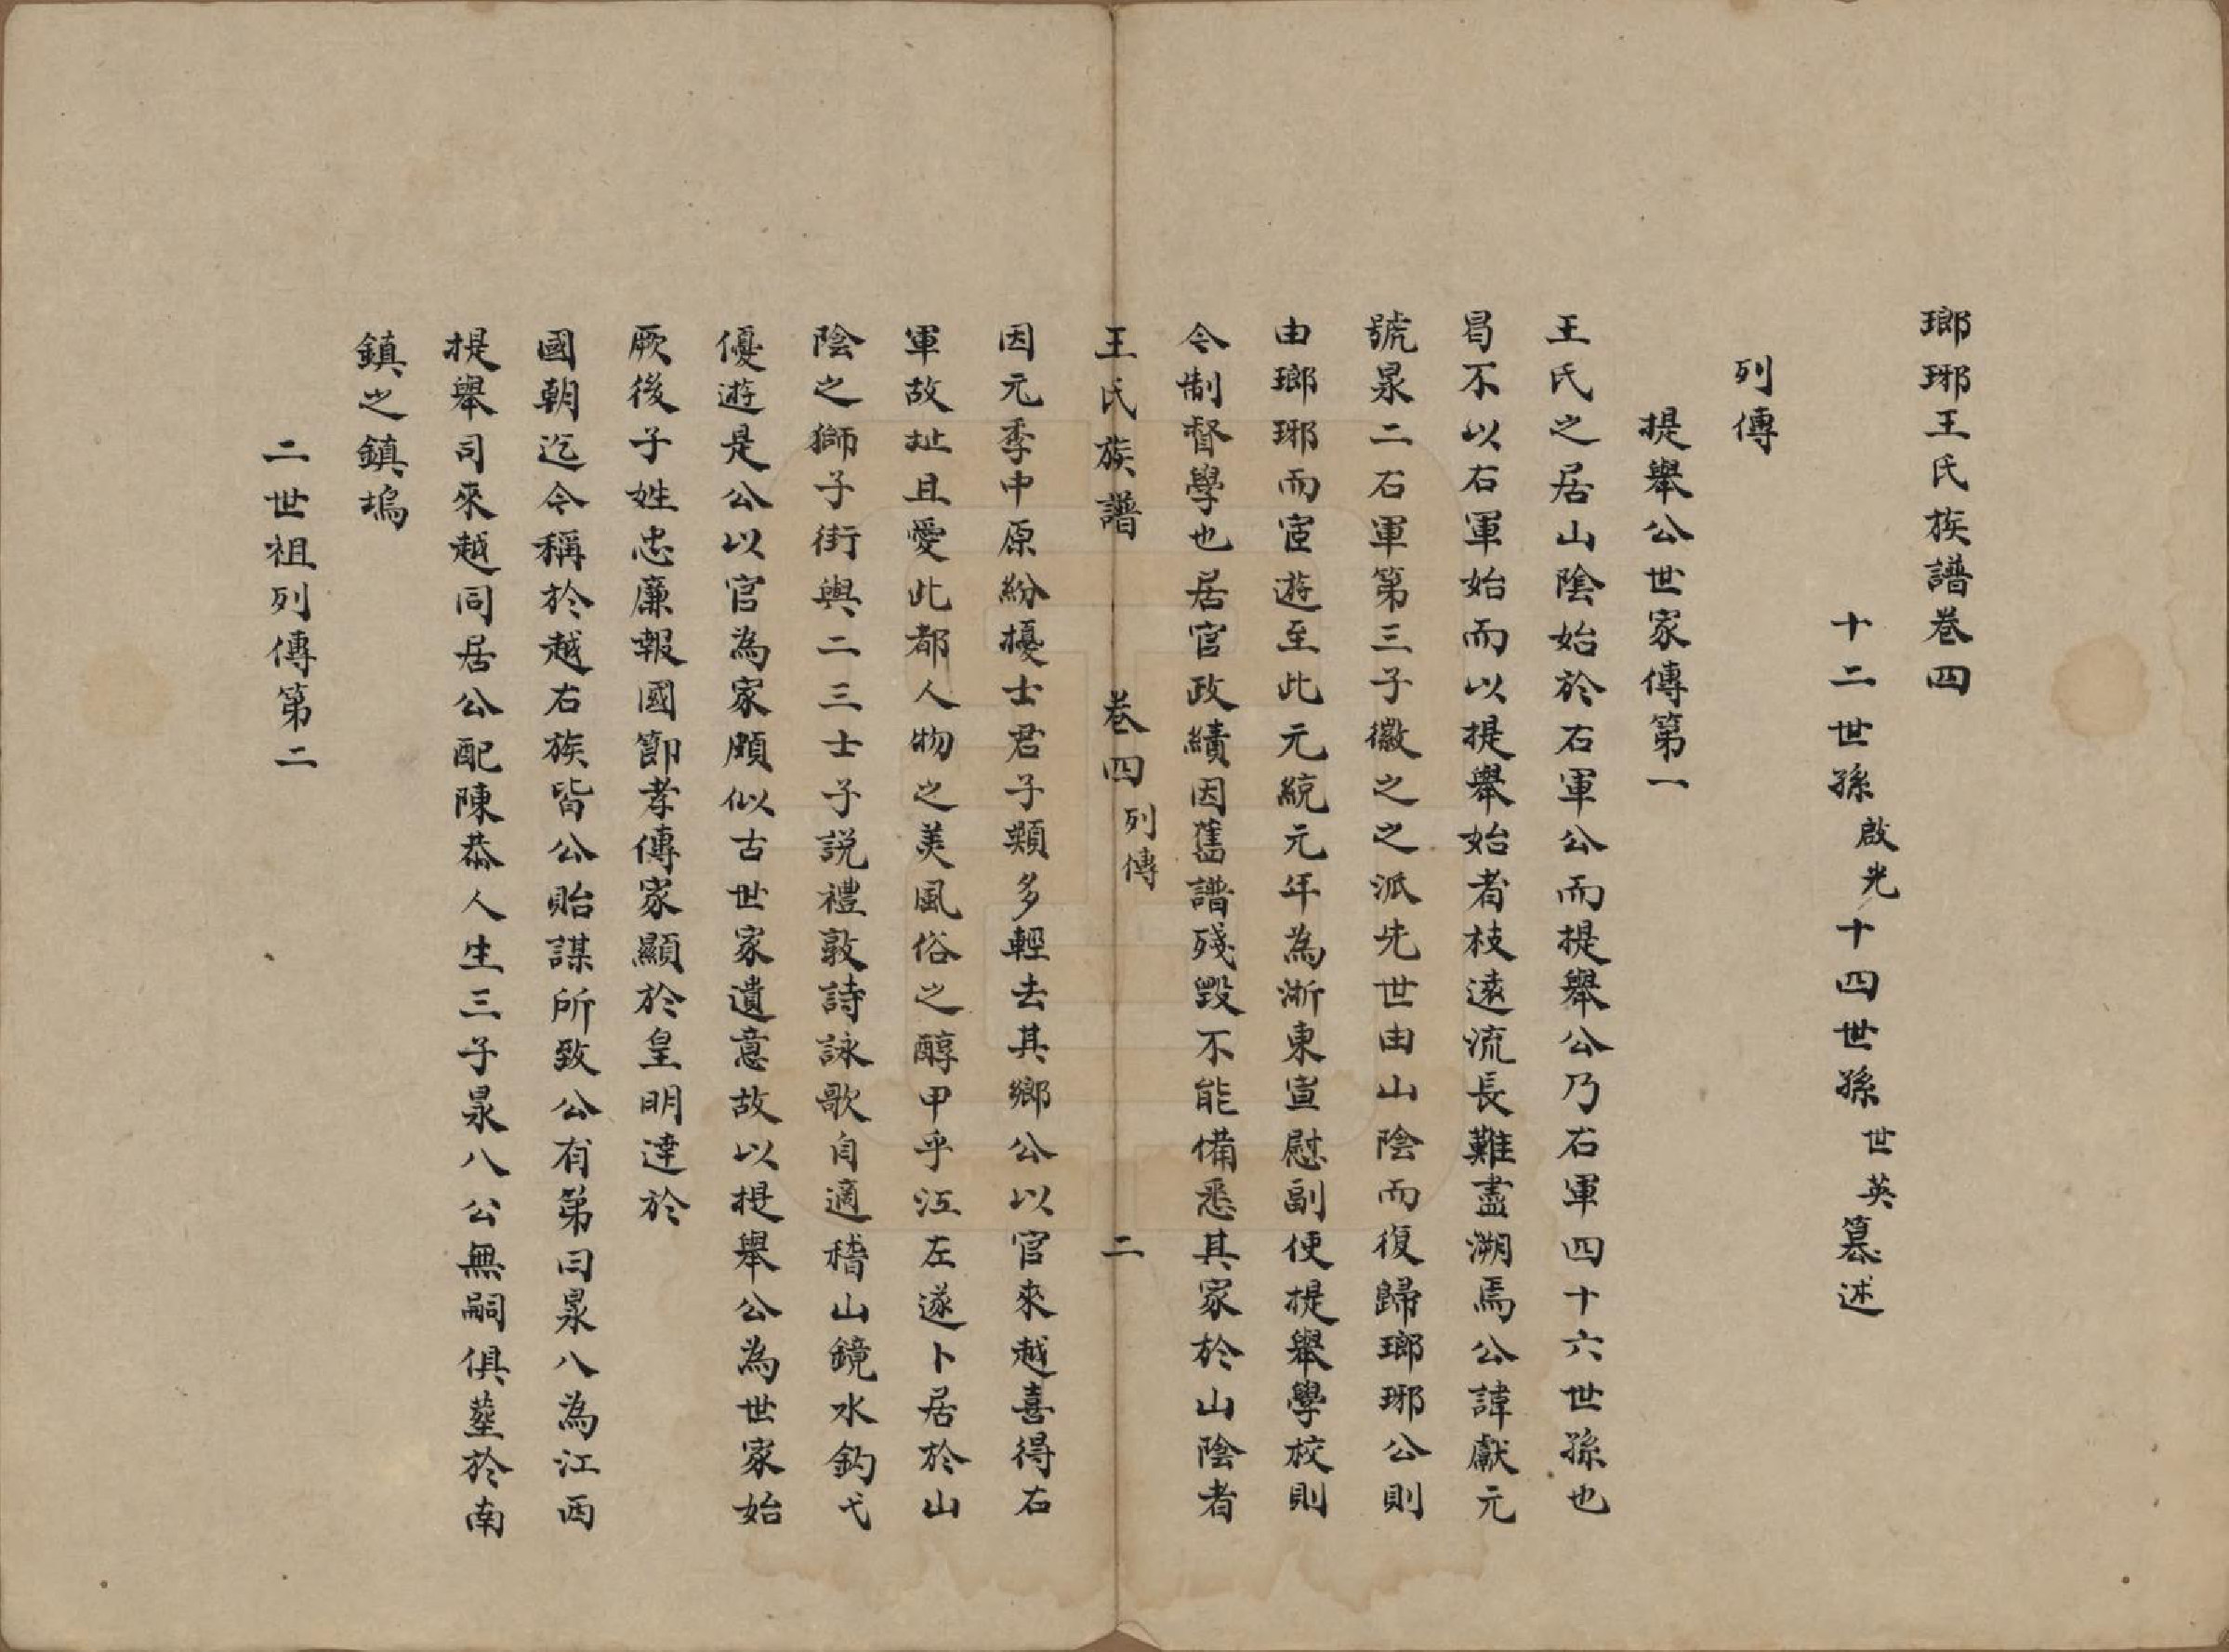 瑯琊王氏族譜卷四
十二世孫啟光十四世孫世英篹述
列傳
提舉公世家傳第一
王氏之居山陰始於右軍公而提舉公乃右軍四十六世孫也
曷不以右軍始而以提舉始者枝遠流長難盡溯焉公諱獻元
號泉二右軍第三子徽之之派先世由山陰而復歸瑯琊公則
由瑯琊而宦遊至此元統元年為淅東宣慰副使提舉學校則
今制督學也居官政績因舊譜殘毀不能備悉其家於山陰者
王氏族譜 卷四 列傳 二
因元季中原紛擾士君子類多輕去其鄉公以官來越喜得右
軍故址且愛此都人物之美風俗之醇甲乎江左遂卜居於山
陰之獅子街與二三士子說禮敦詩詠歌自適稽山鏡水釣弋
優遊是公以官為家頗似古世家遺意故以提舉公為世家始
厥後子姓忠廉報國節孝傳家顯於皇明達於
國朝迄今稱於越右族皆公貽謀所致公有弟曰泉八為江西
提舉司來越同居公配陳恭人生三子泉八公無嗣俱塟於南
鎮之鎮塢
二世祖列傳第二